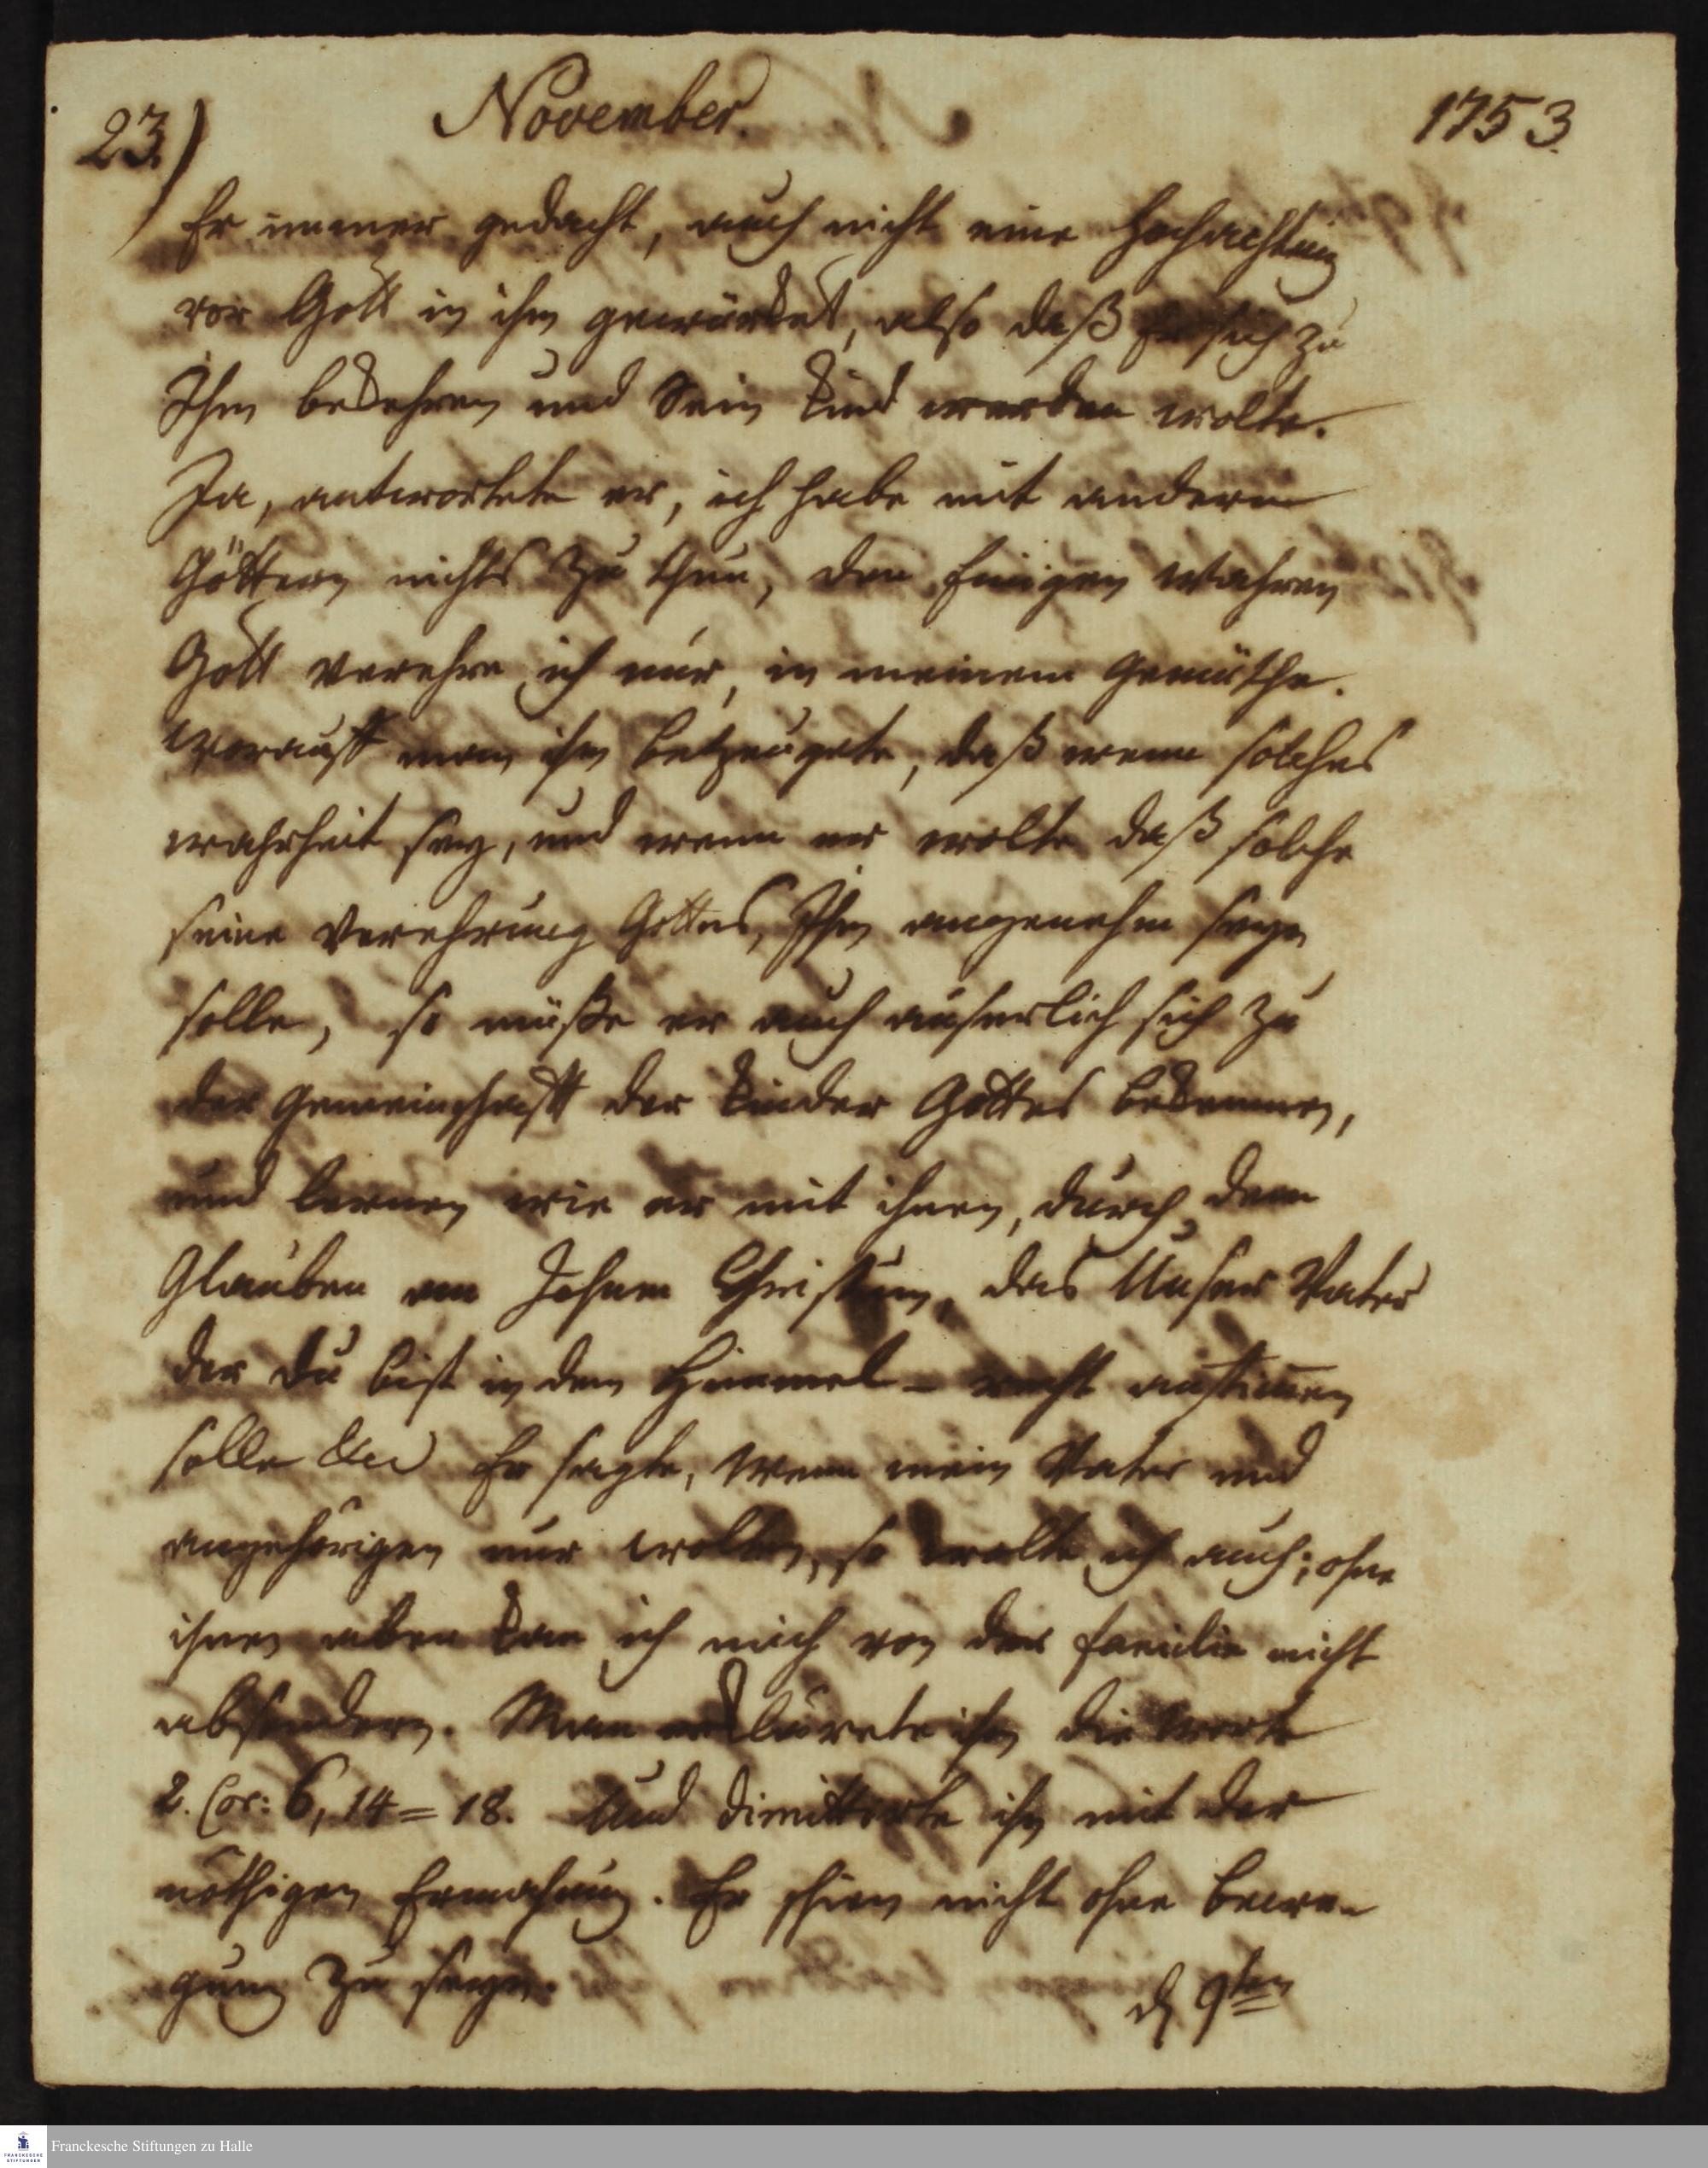 23.) November. 1753.
Er immer gedacht, auch nicht eine Hochachtung
vor Gott in ihm gewürket, also daß Er sich zu
Ihm bekehren und Sein Kind werden wolte.
Ja, antwortete er, ich habe mit andern
Göttern nichts zu thun, den Einigen wahren
Gott verehre ich nur, in meinem Gemüthe.
Worauff man ihm betzeugete, daß wenn solches
wahrheit sey, und wenn er wolte daß solche
seine Verehrung Gottes, Ihm angenehm seyn
solle, so müße er auch äuserlich sich zu
der Gemeinschafft der Kinder Gottes bekennen,
und lernen wie er mit ihnen, durch den
Glauben an Jesum Christum, das Unser Vater
der du bist in dem Himmel - recht anstimen
solle Er sagte, Wenn mein Vater und
angehörigen nur wolten, so wolte ich auch; ohne
ihnen aber kan ich mich von der familie nicht
absondern. Man erklärete ihm die Worte
2. Cor: 6, 14=18. Und dimittirte ihn mit der
nöthigen Ermahnung. Er schien nicht ohne bewe-
gung zu seyn.
d 9ten
Franckesche Stiftungen zu Halle